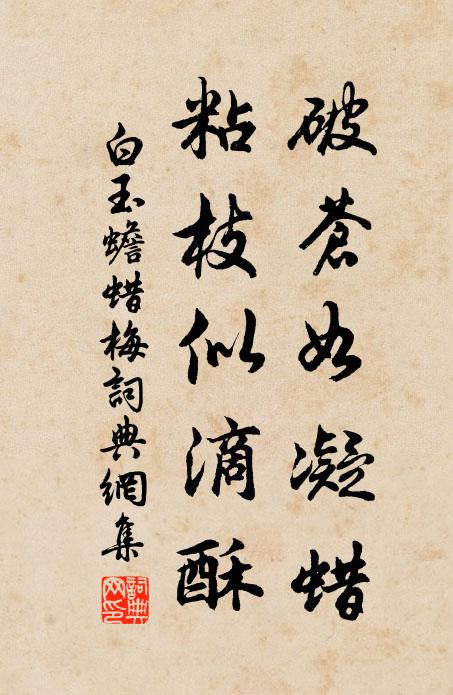 破蒼如凝蜡
粘枝似滴酥
白玉蟾蜡梅詞典網集
詞典網印